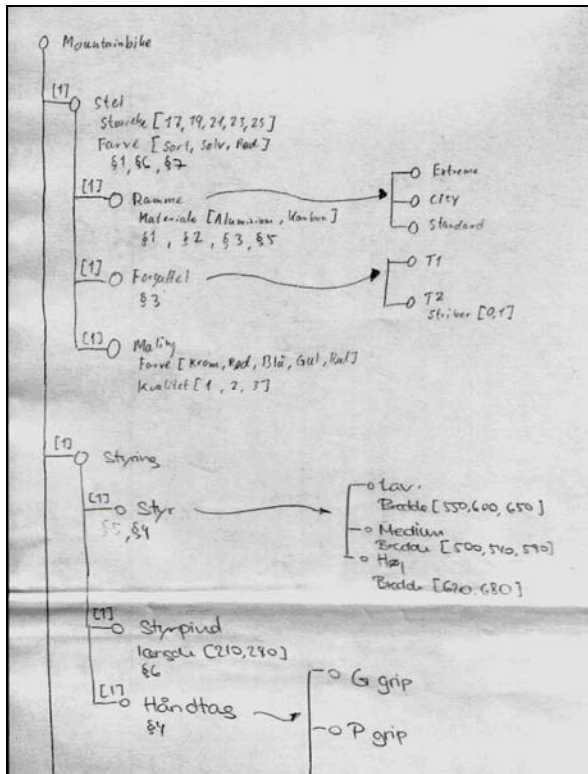 Mountainbike
[1]
Stel
Størrelse [17, 19, 21, 23, 25]
Farve [Sort, Sølv, Rød]
§1, §6, §7
[1]
Ramme
Materiale [Aluminium, Karbon]
§1, §2, §3, §5
Extreme
City
Standard
[1]
Forgaffel
§3
T1
T2
Striber [0,1]
[1]
Maling
Farve [Krom, Rød, Blå, Gul, Ral]
Kvalitet [1, 2, 3]
[1]
Styring
[1]
Styr
§5, §4
Lav
Bredde [550, 600, 650]
Medium
Bredde [500, 540, 590]
Høj
Bredde [620, 680]
[1]
Styrpind
længde [210, 240]
§6
[1]
Håndtag
§4
G grip
P grip